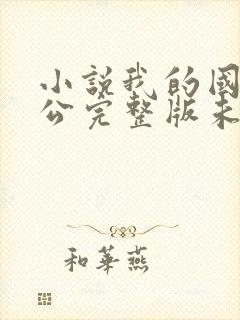 小說我的國
公完整版未
和華燕